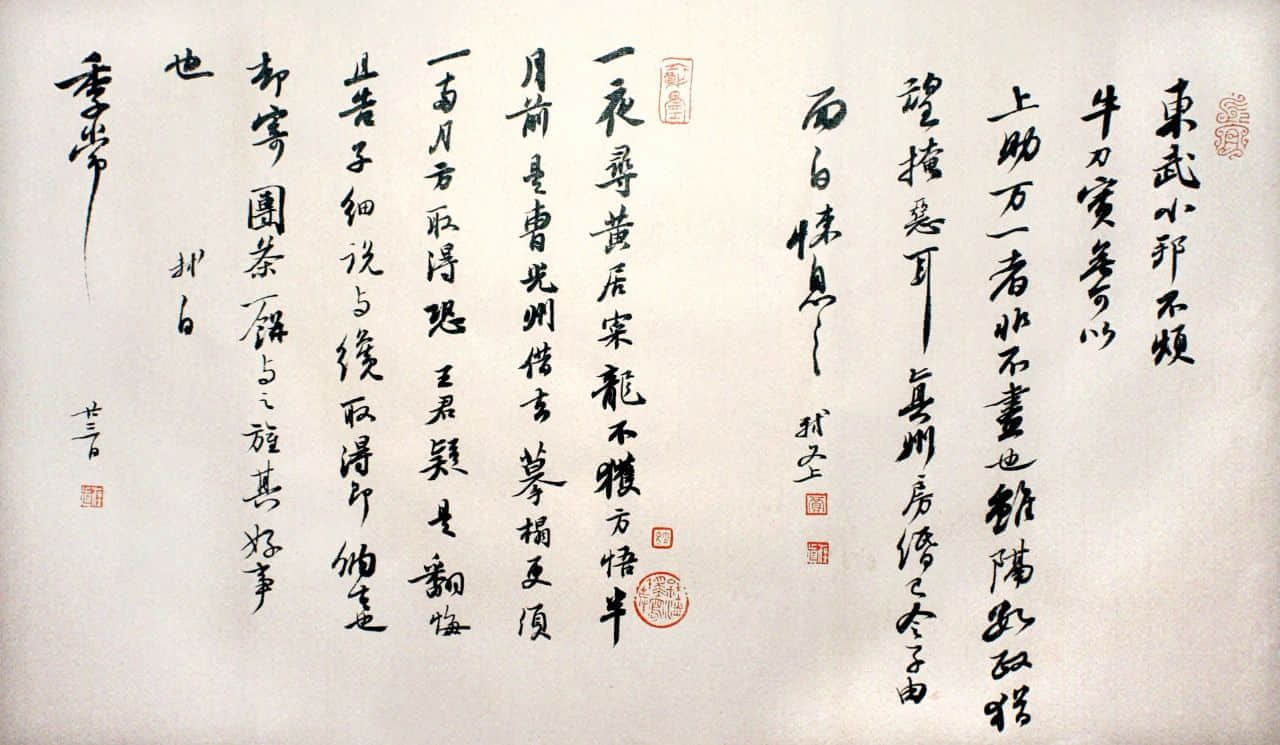 東武小邦不煩
牛刀實無可以
上助万一者非不盡也雖隔數政猶
望掩惡耳真州房緡已令子由
面白悚息々 軾又上
一夜尋黃居寀龍不獲方悟半
月前是曹光州借去摹搨更須
一兩月方取得恐王君疑是翻悔
且告子細説与纔取得即納去也
却寄團茶一餅与之旌其好事
也 軾白
季常 廿三日